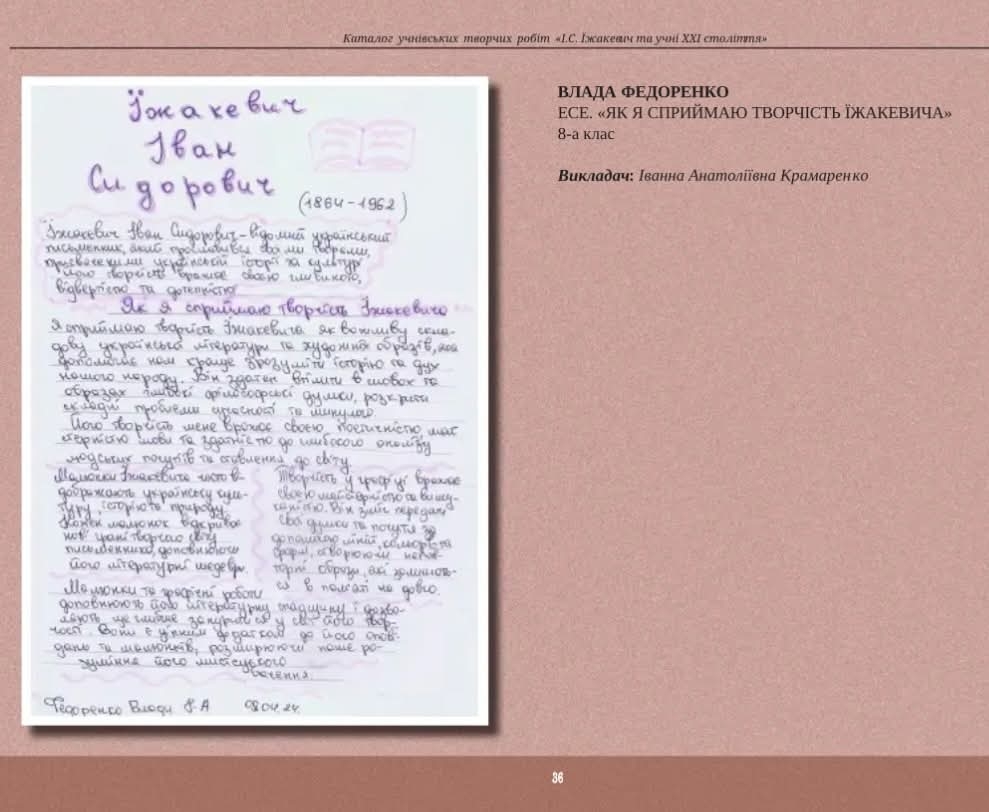 Каталог учнівських творчих робіт «І.С. Їжакевич та учні ХХІ століття»
Їжакевич
Іван
Сидорович
(1864-1962)
Їжакевич Іван Сидорович - відомий український
письменник, який прославився своїми творами,
присвяченими українській історії та культурі
його творчість вражає своєю глибиною,
відвертістю та
Як я сприймаю творчість Їжакевича
Я сприймаю творчість Їжакевича як важливу скла-
дову української літератури та художніх образів, яка
допомагає нам краще зрозуміти історію та дух
нашого народу. Він здатен втілити в словах та
образах глибокі філософські думки, розкрити
складні проблеми сучасності та минулого.
Його творчість мене вражає своєю поетичністю, май
стерністю мови та здатністю до глибокого аналізу
людських почуттів та ставлення до світу.
Малюнки Їжакевича часто ві-
дображають українську куль-
туру, історію та природу.
Кожен малюнок відкриває
нові грані творчого світу
письменника, доповнюючи
його літературні шедеври.
Творчість у графіці вражає
своєю майстерністю та вишу-
каністю. Він зміг передати
свої думки та почуття за
допомогою ліній, кольорів та
форм, створюючи непов-
торні образи, які залишають-
ся в пам'яті на довго.
Малюнки та графічні роботи
доповнюють його літературну спадщину і дозво-
ляють ще глибше зануритися у світ його твор-
чості. Вони є цінним додатком до його опові-
дань та малюнків, розширюючи наше ро-
зуміння його мистецького
бачення.
Федоренко Влади 8-А 08.04.24.
ВЛАДА ФЕДОРЕНКО
ЕСЕ. «ЯК Я СПРИЙМАЮ ТВОРЧІСТЬ ЇЖАКЕВИЧА»
8-а клас
Викладач: Іванна Анатоліївна Крамаренко
36